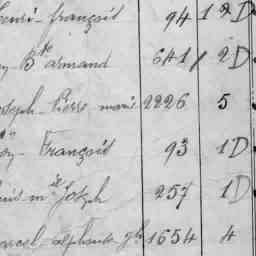 henri-françois 94 1 2 D
Bte armand 641 / 2 D
Joseph-Pierre marie 2226 5
François 93 1 D
Joseph 257 1 D
marcel-alphonse 1654 4